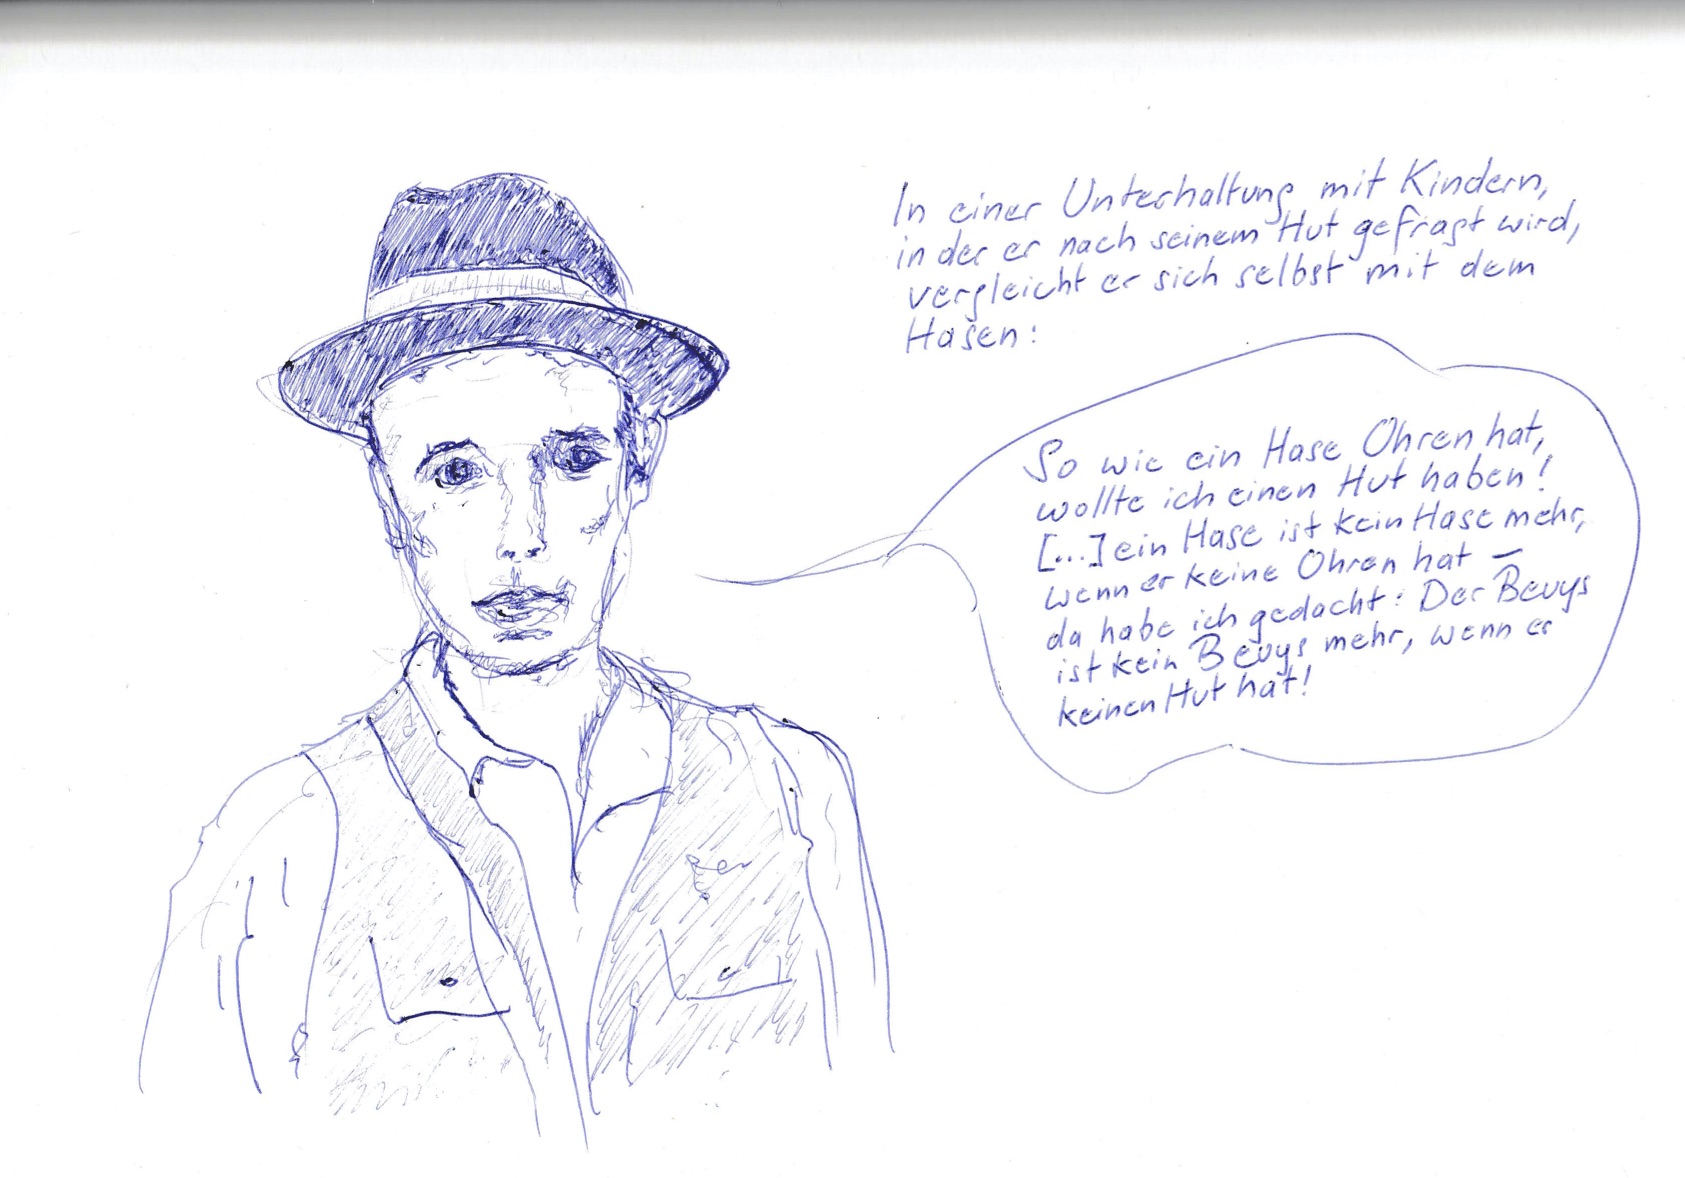 In einer Unterhaltung mit Kindern,
in der er nach seinem Hut gefragt wird,
vergleicht er sich selbst mit dem
Hasen:
So wie ein Hase Ohren hat,
wollte ich einen Hut haben!
[...] ein Hase ist kein Hase mehr,
wenn er keine Ohren hat –
da habe ich gedacht: Der Beuys
ist kein Beuys mehr, wenn er
keinen Hut hat!